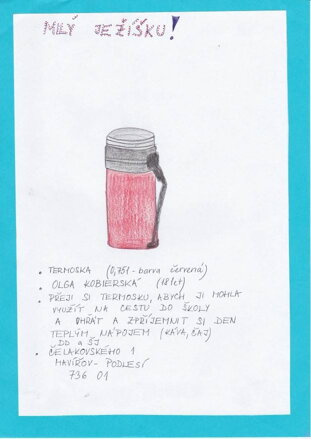 MILÝ JEŽÍŠKU!
• TERMOSKA (0,75l - barva červená)
• OLGA KOBIERSKÁ (18 let)
• PŘEJI SI TERMOSKU, ABYCH JI MOHLA
VYUŽÍT NA CESTU DO ŠKOLY
A OHŘÁT A ZPŘÍJEMNIT SI DEN
TEPLÝM NÁPOJEM (KÁVA, ČAJ)
• DD a ŠJ
ČELAKOVSKÉHO 1
HAVÍŘOV - PODLESÍ
736 01